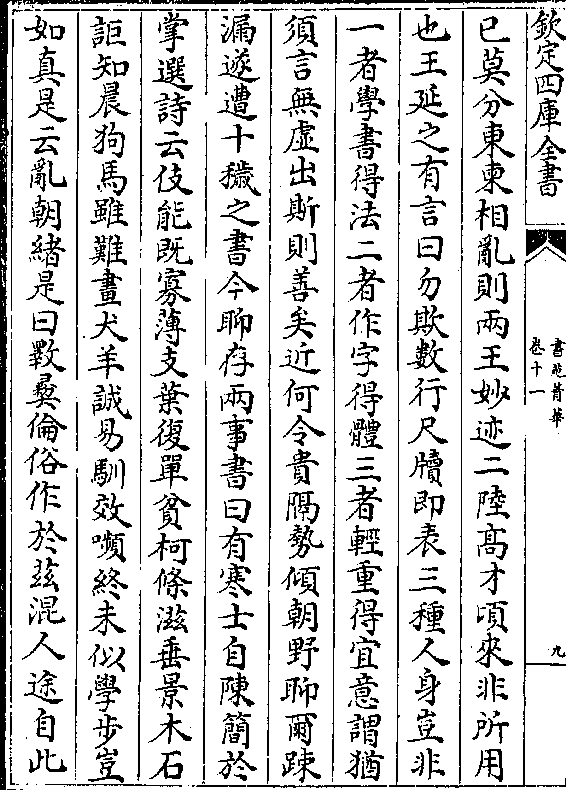 欽定四庫全書
書苑菁華
卷十一
九
已莫分東柬相亂則兩王妙迹二陸髙才頃來非所用
也王延之有言曰勿欺數行尺牘即表三種人身豈非
一者學書得法二者作字得體三者輕重得宜意謂猶
須言無虛出斯則善矣近何令貴隔勢傾朝野聊爾踈
漏遂遭十穢之書今聊存兩事書曰有寒士自陳簡於
掌選詩云伎能既寡薄支葉復單貧柯條滋垂景木石
詎知晨狗馬雖難畫犬羊誠易馴效嚬終未似學步豈
如真是云亂朝緒是曰斁彞倫俗作於茲混人途自此